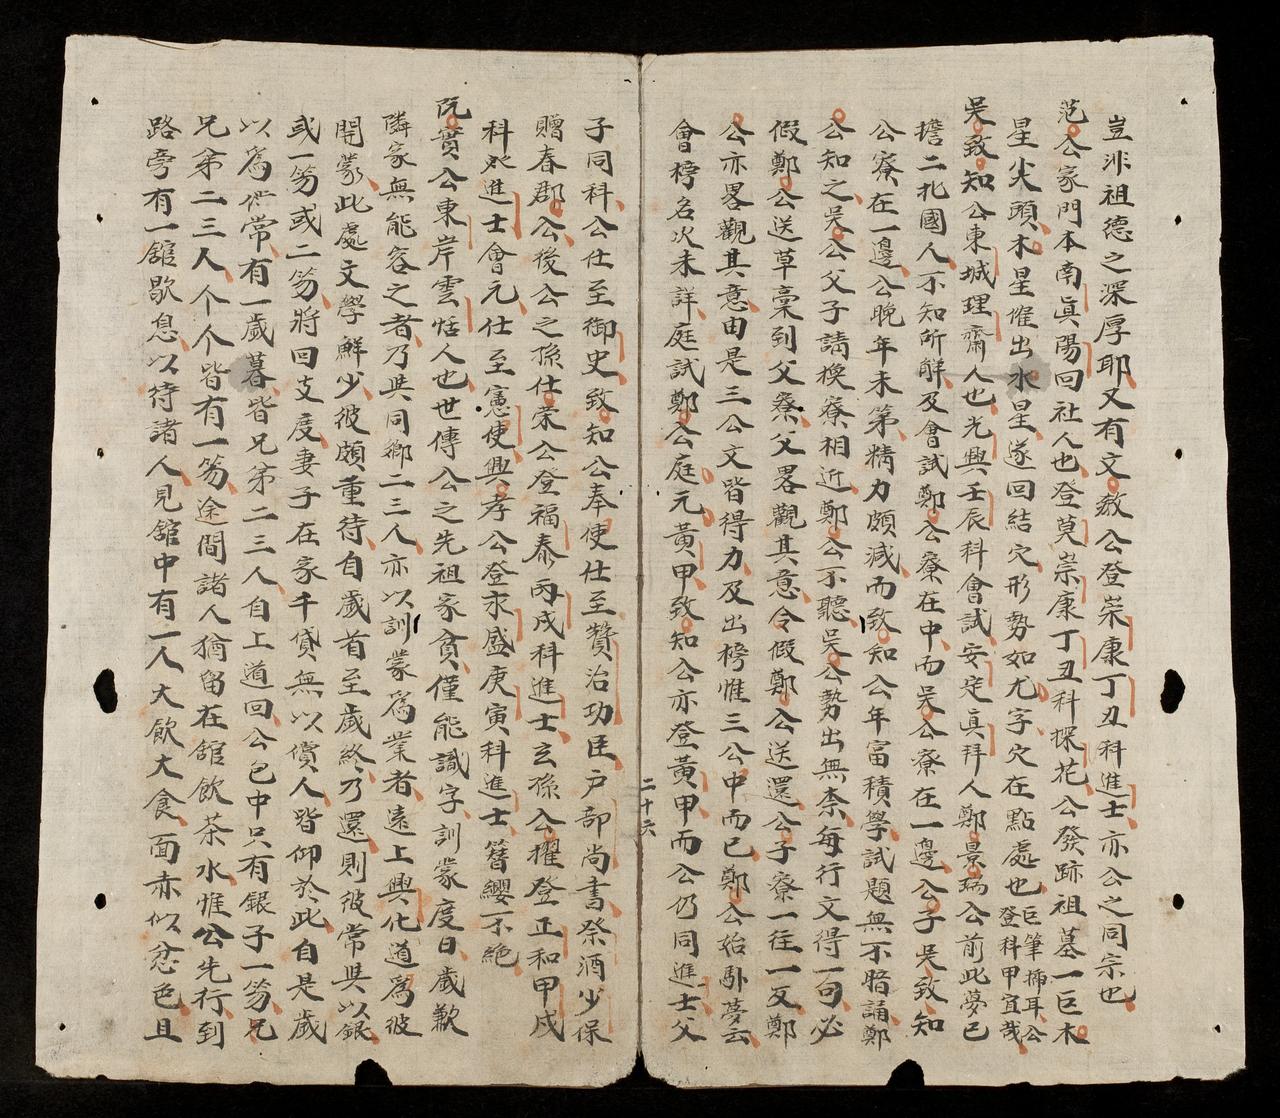 豈非祖德之深厚耶又有文敖公登崇康丁丑科進士亦公之同宗也
范公家門本南眞陽回社人也登莫崇康丁丑科探花公發跡祖墓一巨木
星尖頭木星惟出水星遂回結穴形勢如尤字穴在點處也巨筆揷耳公登科甲宜哉
吳致知公東城理齋人也光興壬辰科會試安定眞拜人鄭景瑞公前此夢已
擔二北國人不知所解及會試鄭公寮在中而吳公寮在一邊公子吳致知
公寮在一邊公晚年未第精力頗減而致知公年富積學試題無不暗誦鄭
公知之吳公父子請換寮相近鄭公不聽吳公勢出無柰每行文得一句必
假鄭公送草稾到父寮父畧觀其意令假鄭公送還公子寮一往一反鄭
公亦畧觀其意由是三公文皆得力及出榜惟三公中而已鄭公始卧夢云
會榜名次未詳庭試鄭公庭元黃甲致知公亦登黃甲而公仍同進士父
二十六
子同科公仕至御史致知公奉使仕至贊治功臣户部尚書祭酒少保
贈春郡公後公之孫仕荣公登福泰丙戌科進士玄孫公擢登正和甲戌
科進士會元仕至憲使興孝公登永盛庚寅科進士簪纓不絶
阮實公東岸雲恬人也世傳公之先祖家貧僅能識字訓蒙度日歲歉
隣家無能容之者乃與同鄉二三人亦以訓蒙爲業者遠上興化道爲彼
開蒙此處文學鮮少彼頗重待自歲首至歲終乃還則彼常與以銀
或一笏或二笏將回支度妻子在家千貸無以償人皆仰於此自是歲
以爲常有一歲暮皆兄弟二三人自上道回公包中只有銀子一笏兄
兄弟二三人个个皆有一笏途間諸人猶留在舘飲茶水惟公先行到
路旁有一舘歇息以待諸人見舘中有一人大飲大食面赤似忿色且